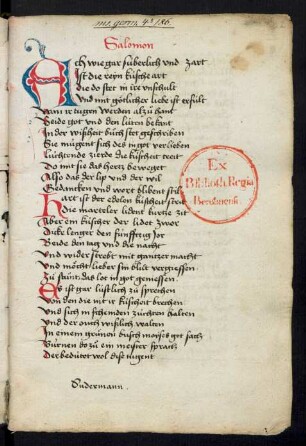 ms. germ. 4° 186.
Salomon
Ach wie gar süberlich und zart
Ist die reyn küsche art
die do stet in ire unschult
Und mit götlicher liebe ist erfült
Wan ir tugen werden alzů hant
Beide got und den lüten bekant
In der wißheit bůch stet geschriben
Sie mügent sich des in got verlieben
Lüchtende zierde die küscheit treit
Do mit sie das hertz beweget
Also das der lip und der wil
Gedancken und wort blibent stil
Hart ist der edelen küscheit streit
die marteler lident kurtze zit
Aber ein küscher der lidet zwor
Dicke lenger den fünfftzig jor
Beide den tag und die nacht
Und widerstrebt mit gantzer macht
Und möcht lieber sin blůt vergiessen
Zů stünt das lot in got geniessen
Es ist gar lüstlich zů sprechen
Von den die nit ir küscheit brechen
Und sich in schemden züchten halten
Und der ouch wißlich walten
In einem grünen busch moises got sach
Bürnen do zů ein meister sprach
der bedütet wol dise tugent
Dudermann
Ex
Biblioth. Regia
Berolinensi.